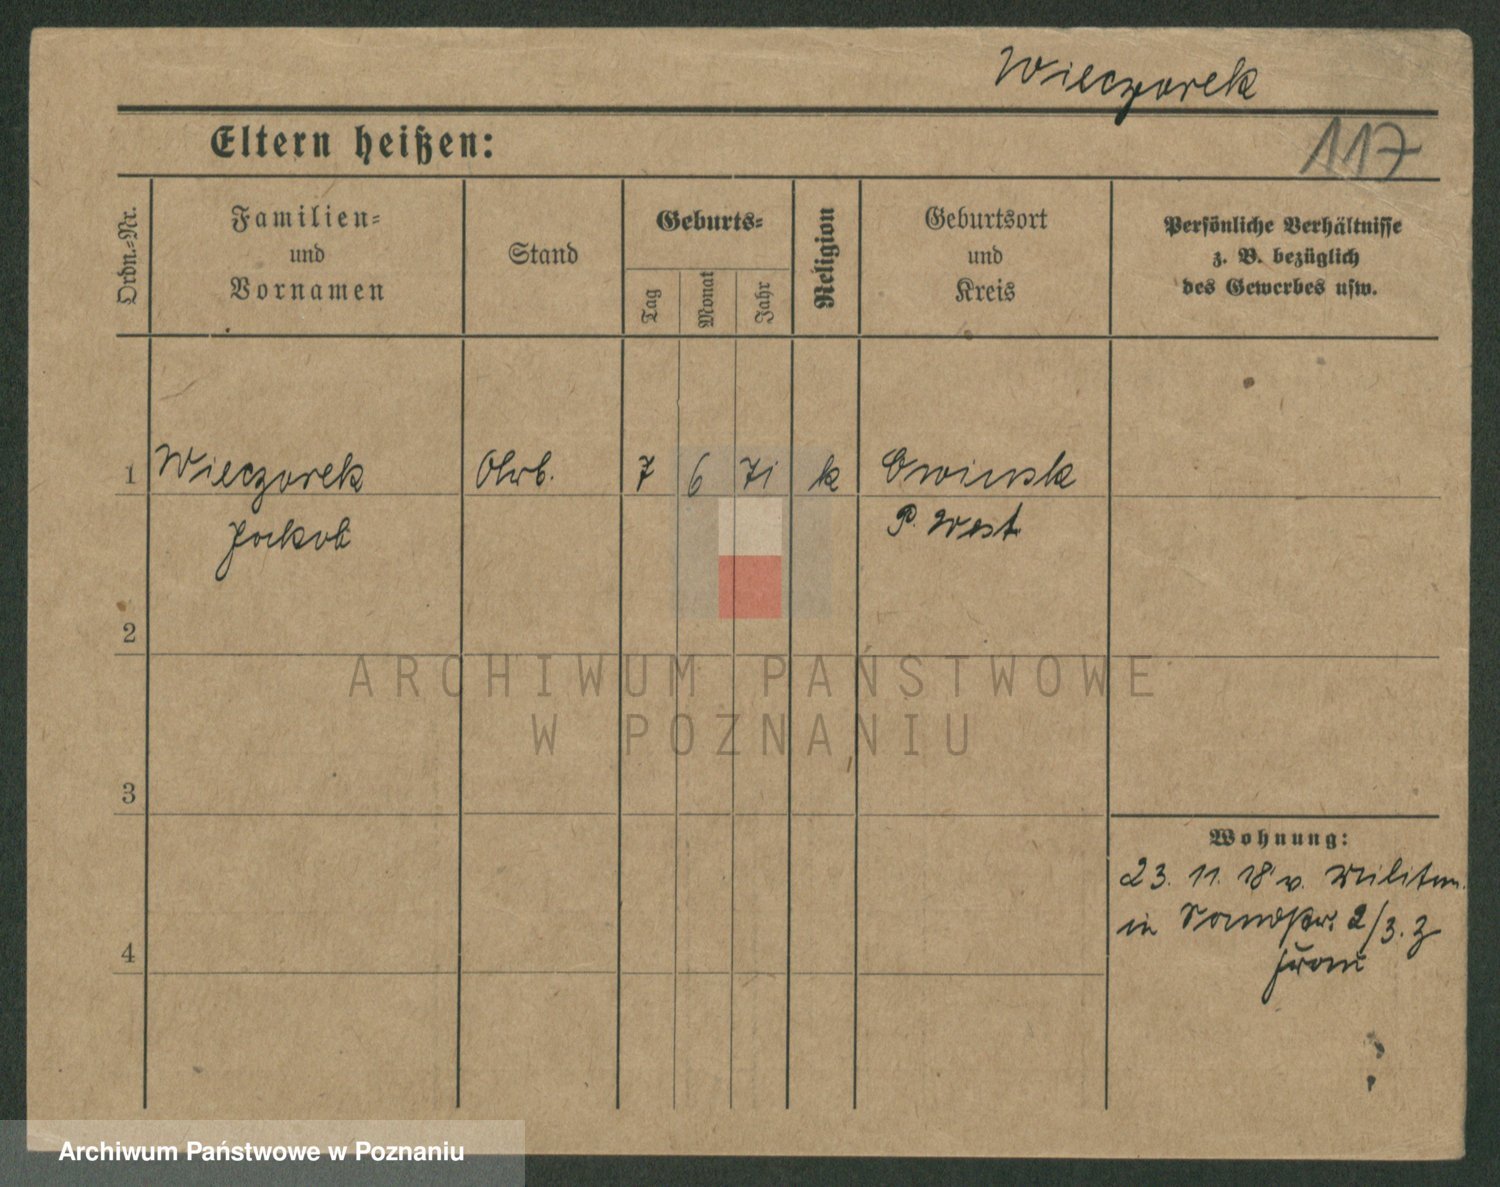 Wieczorek
Eltern heißen:
117
Ordn.-Nr.
Familien-
und
Vornamen
Stand
Geburts-
Tag
Monat
Jahr
Religion
Geburtsort
und
Kreis
Persönliche Verhältnisse
z. B. bezüglich
des Gewerbes usw.
1 Wieczorek Arb. 7 6 71 k Owinsk
Jakob P. West
2
ARCHIWUM PAŃSTWOWE
W POZNANIU
3
Wohnung:
23. 11. 18 v. Militär
in 2/3. Z
4
Archiwum Państwowe w Poznaniu